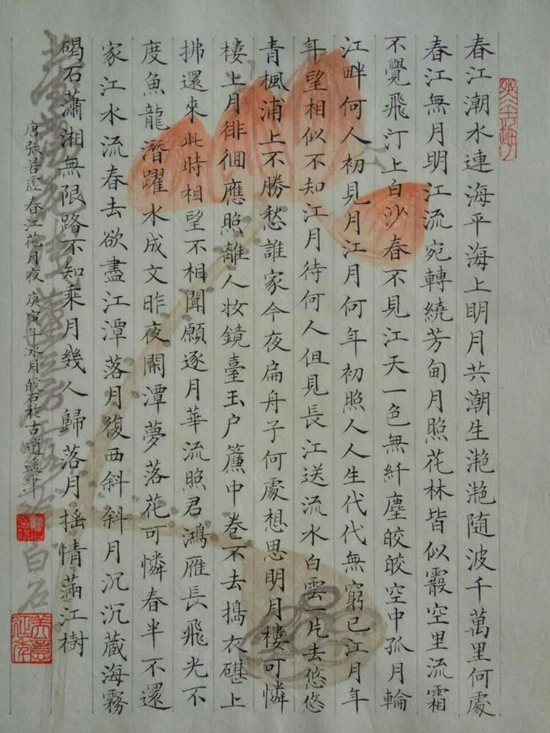 春江潮水連海平海上明月共潮生滟滟隨波千萬里何處
春江無月明江流宛轉繞芳甸月照花林皆似霰空里流霜
不覺飛汀上白沙春不見江天一色無纤塵皎皎空中孤月輪
江畔何人初見月江月何年初照人人生代代無窮已江月年
年望相似不知江月待何人但見長江送流水白雲一片去悠悠
青楓浦上不勝愁誰家今夜扁舟子何處想思明月樓可憐
樓上月徘徊應照離人妝鏡臺玉户簾中卷不去搗衣碪上
拂還來此時相望不相聞願逐月華流照君鴻雁長飛光不
度魚龍潛躍水成文昨夜閑潭夢落花可憐春半不還
家江水流春去欲盡江潭落月復西斜斜月沉沉藏海霧
碣石瀟湘無限路不知乘月幾人歸落月摇情滿江樹
唐張若虛春江花月夜 庚寅年
白石